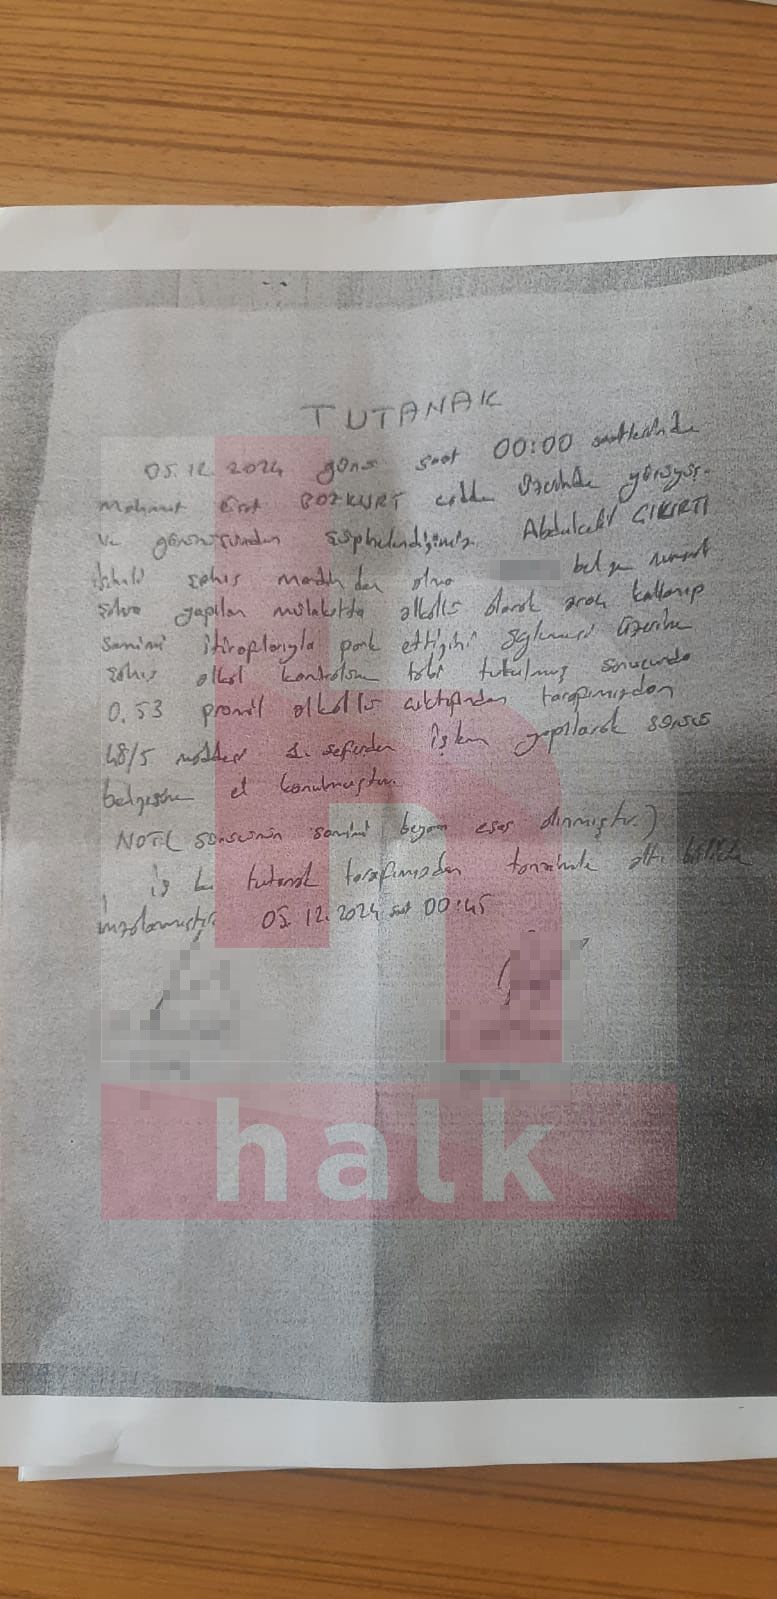 TUTANAK
05.12.2024 günü saat 00:00 saatlerinde
Mahmut Esat BOZKURT cadde üzerinde
ve görünüşünden şüphelendiğimiz
şahıs belge
yapılan mülakatta alkollü olarak araç kullanıp
samimi itiraflarıyla park ettiğini söylemesi üzerine
şahıs alkol kontrolüne tabi tutulmuş sonucunda
0.53 promil alkollü çıktığından tarafımızdan
48/5 maddesi 1. seferden işlem yapılarak sürücü
belgesine el konulmuştur.
NOT( sürücünün samimi beyanı esas alınmıştır.)
iş bu tutanak tarafımızdan tanzimle altı birlikte
imzalanmıştır 05.12.2024 saat 00:45
h
halk